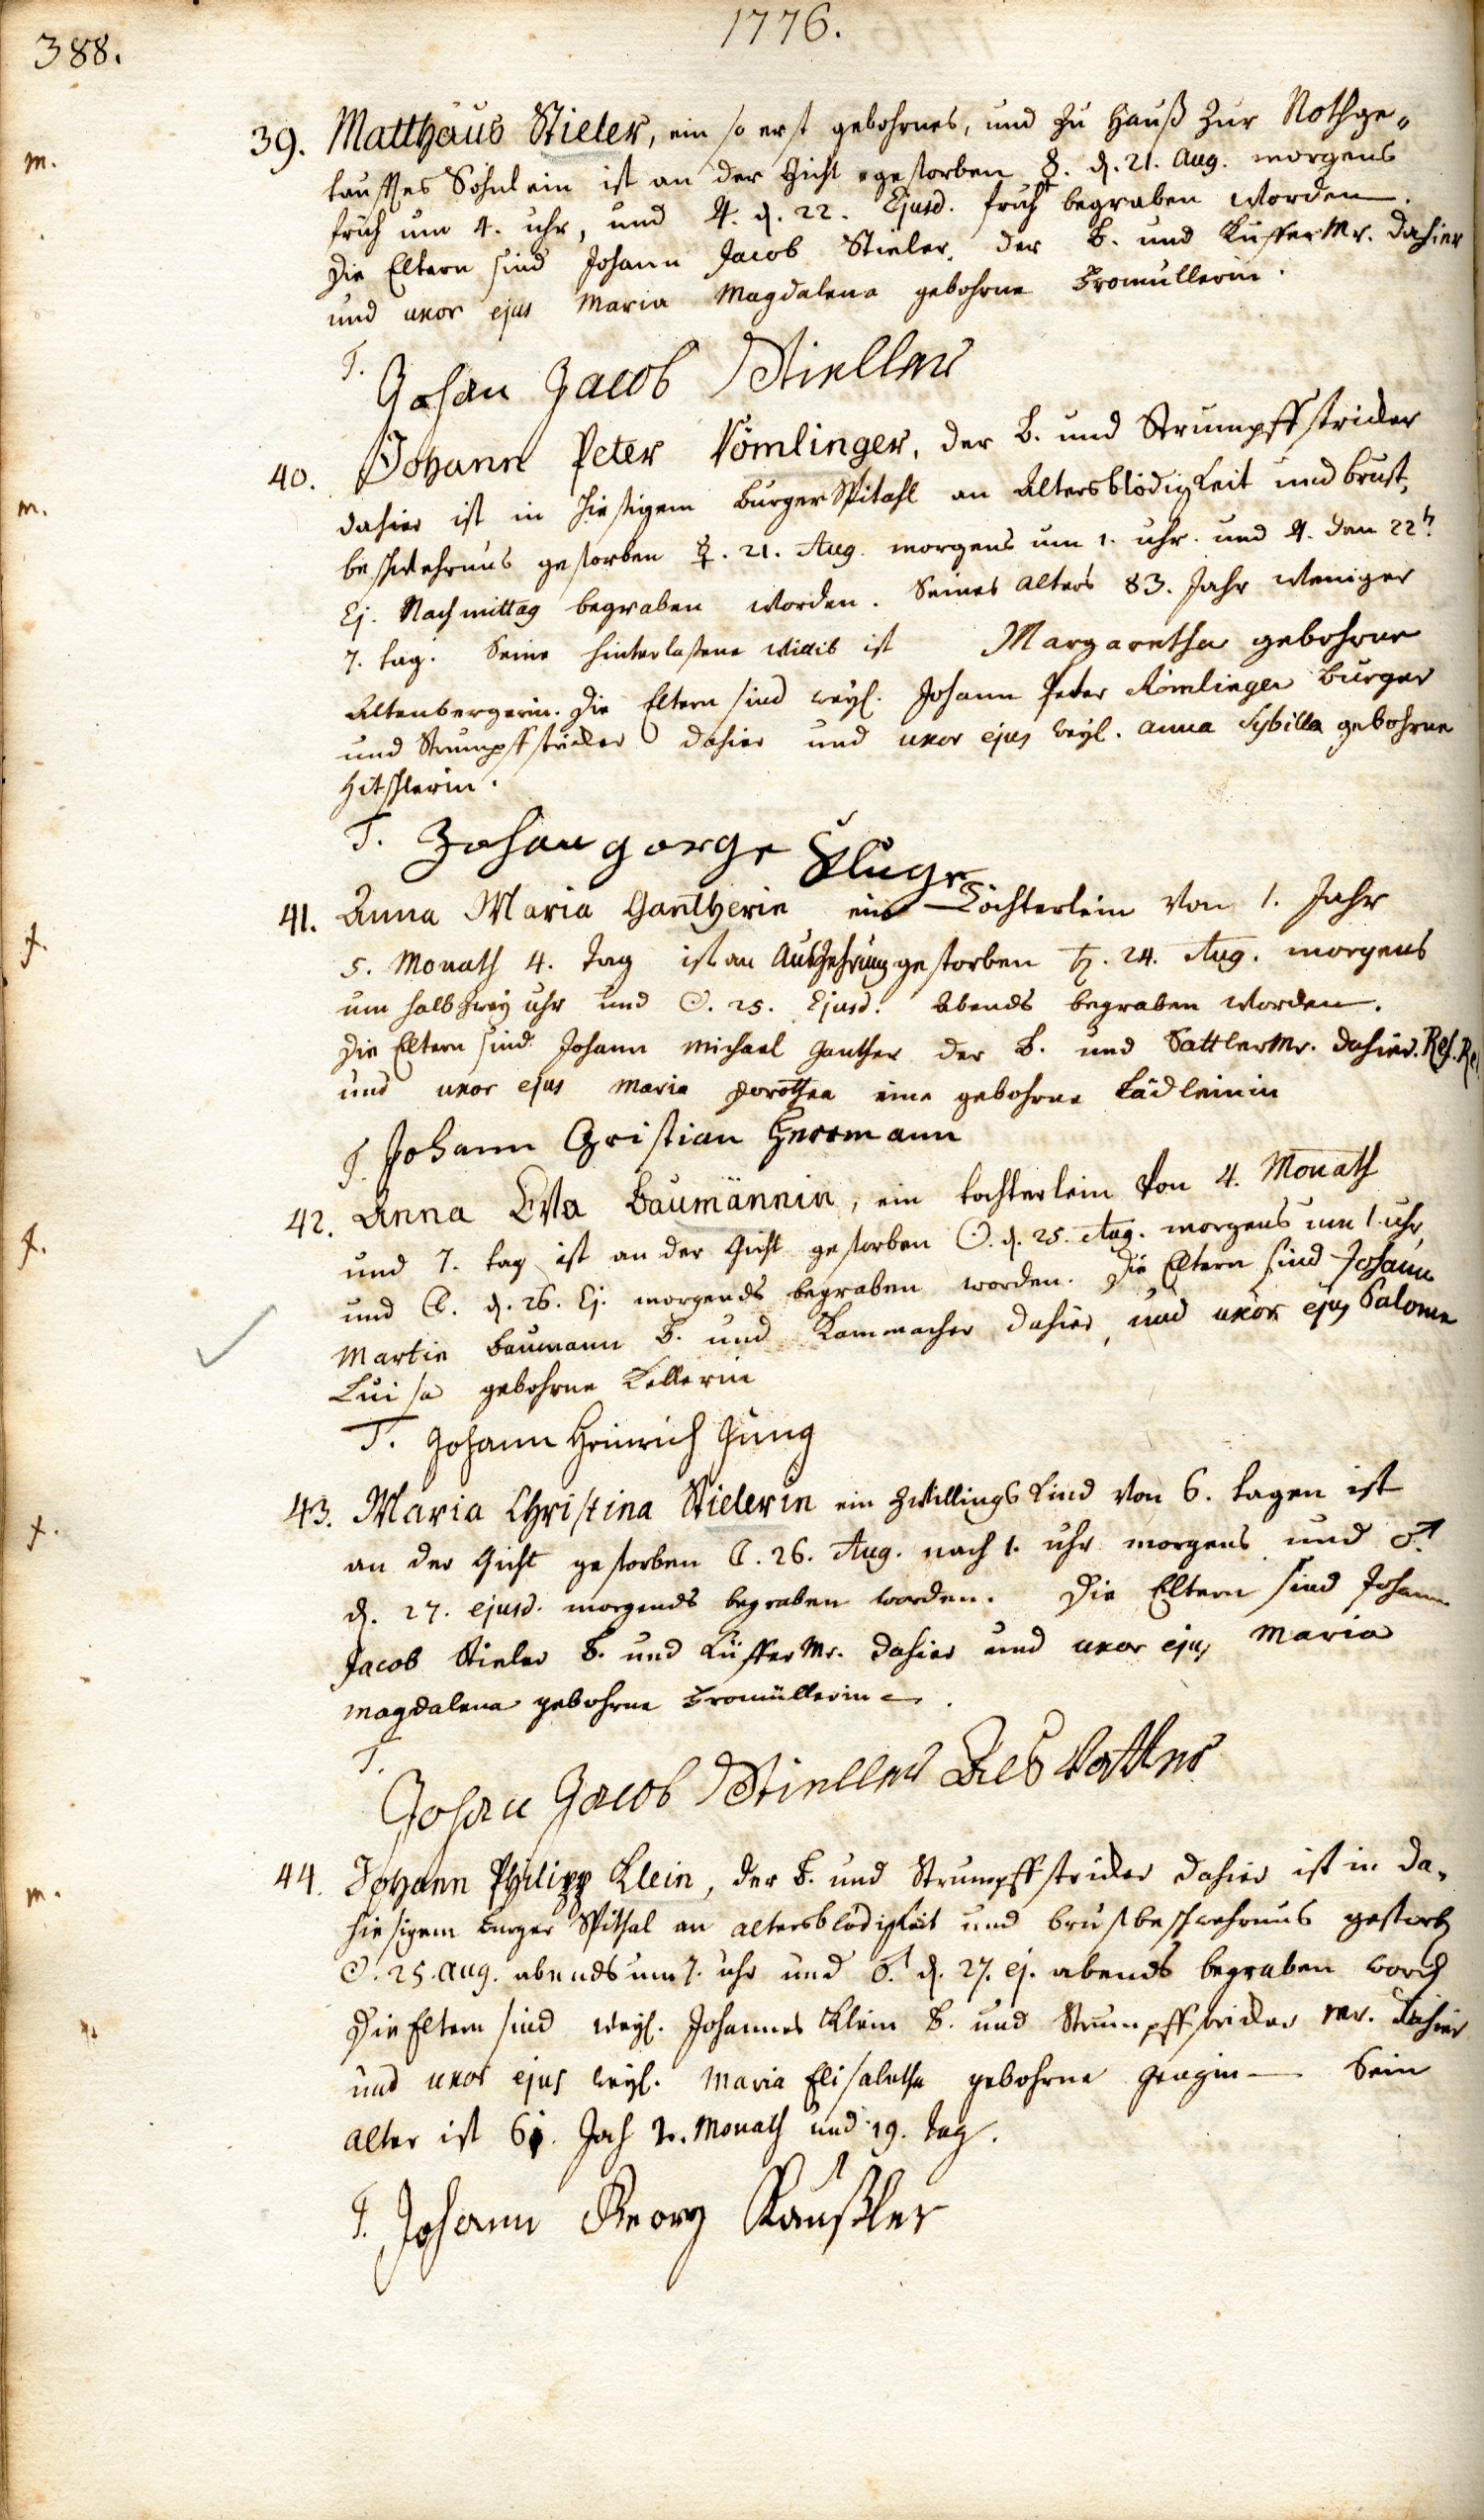 388.
1776.
m.
39. Matthäus Stieler, ein so erst gebohrnes, und zu Hauß zur Nothge„
taufftes Söhnlein ist an der Gicht gestorben ☿. d. 21. Aug. morgens
früh um 4. uhr, und ♃. d. 22. Ejusd. früh begraben worden.
Die Eltern sind Johann Jacob Stieler, der B. und KüfferMr. dahier
und uxor ejus Maria Magdalena gebohrne Fromüllerin.
T. Johan Jacob Stieller
m.
40. Johann Peter Römlinger, der B. und Strumpffstricker
dahier ist in hiesigem BurgerSpitahl an Altersblödigkeit und Brust,
beschwehrnus gestorben ☿. 21. Aug. morgens um 1. uhr. und ♃. den 22t.
Ej. Nachmittag begraben worden. Seines Alters 83. Jahr weniger
7. tag. Seine hinterlaßene Wittib ist Margaretha gebohrne
Altenbergerin. Die Eltern sind weyl. Johann Peter Römlinger Burger
und Strumpffstricker dahier und uxor ejus weyl. Anna Sybilla gebohrne
Hitschlerin.
T. Johan gorge Kluge
f.
41. Anna Maria Gantherin ein Töchterlein von 1. Jahr
5. Monath 4. Tag ist an Auszehrung gestorben ♄. 24. Aug. morgens
um halb zwey uhr und ☉. 25. Ejusd. Abends begraben worden.
Die Eltern sind Johann Michael Ganther der B. und SattlerMr. dahier. Ref. Rel
und uxor ejus Maria Dorothea eine gebohrne Lädleinin
T. Johann Christian Herrmann
f.
42. Anna Eva Baumännin, ein tochterlein von 4. Monath
und 7. tag ist an der Gicht gestorben ☉. d. 25. Aug. morgens um 1. uhr,
und ☾. d. 26. Ej. morgends begraben worden. Die Eltern sind Johann
Martin Baumann B. und Kammacher dahier, und uxor ejus Salome
Luisa gebohrne Kellerin
T. Johann Heinrich Jung
f.
43. Maria Christina Stielerin ein Zwillings Kind von 6. tagen ist
an der Gicht gestorben ☾. 26. Aug. nach 1. uhr morgens und ♂.
d. 27. ejusd. morgends begraben worden. Die Eltern sind Johann
Jacob Stieler B. und KüfferMr. dahier und uxor ejus Maria
Magdalena gebohrne Fromüllerin.
T. Johan Jacob Stieller Als Vatter
m.
44. Johann Philipp Klein, der B. und Strumpffstricker dahier ist in da„
hiesigem Burger Spithal an altersblödigkeit und brustbeschwehrnus gestorb
☉. 25. Aug. abends um 7. uhr und ♂. d. 27. ej. abends begraben word
Die Eltern sind weyl. Johannes Klein B. und Strumpffstricker Mr. dahier
und uxor ejus weyl. Maria Elisabetha gebohrne Sein
alter ist 61. Jah 2. Monath und 19. tag.
T. Johann Georg Kaußler